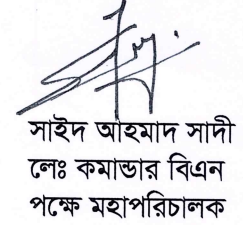 সাইদ আহমাদ সাদী
লেঃ কমান্ডার বিএন
পক্ষে মহাপরিচালক